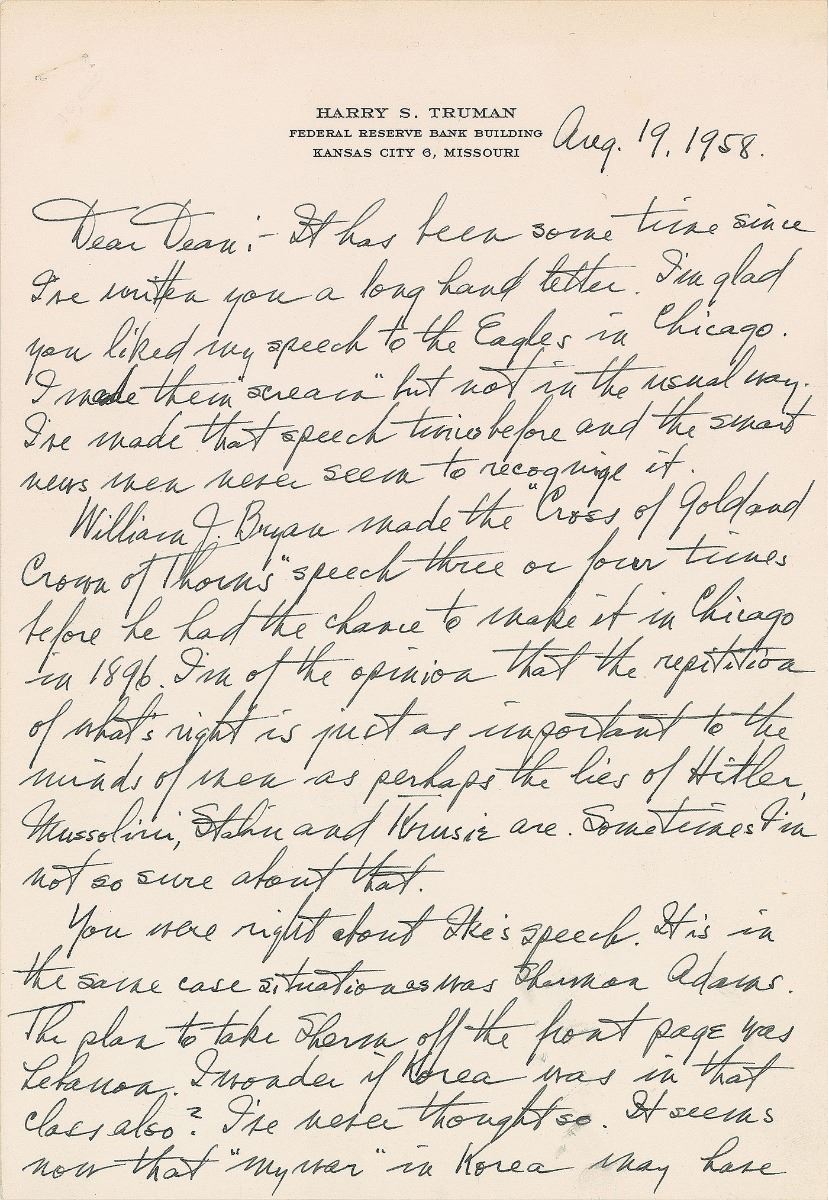 HARRY S. TRUMAN
FEDERAL RESERVE BANK BUILDING
KANSAS CITY 6, MISSOURI
Aug. 19, 1958.
Dear Dean:- It has been some time since
I've written you a long hand letter. I'm glad
you liked my speech to the Eagles in Chicago.
I made them "scream" but not in the usual way.
I've made that speech twice before and the smart
news men never seem to recognize it.
William J. Bryan made the "Cross of Gold and
Crown of Thorns" speech three or four times
before he had the chance to make it in Chicago
in 1896. I'm of the opinion that the repitition
of what's right is just as important to the
minds of men as perhaps the lies of Hitler,
Mussolini, Stalin and Krusie are. Sometimes I'm
not so sure about that.
You were right about Ike's speech. It is in
the same case situation as was Sherman Adams.
The plan to take Sherm off the front page was
Lebanon. I wonder if Korea was in that
class also? I've never thought so. It seems
now that "my war" in Korea may have